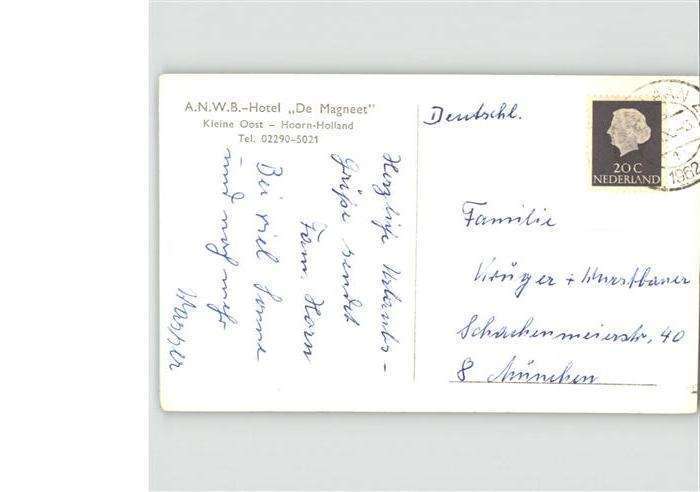 A.N.W.B.–Hotel „De Magneet"
Kleine Oost – Hoorn-Holland
Tel. 02290–5021
Herzliche Urlaubs-
grüße sendet
Fam. Horn
Bei viel Sonne
und noch mehr
Wasser
Deutschl.
20 C
NEDERLAND
1962
Familie
Krüger + Wurstbauer
Schachenmeierstr. 40
8 München